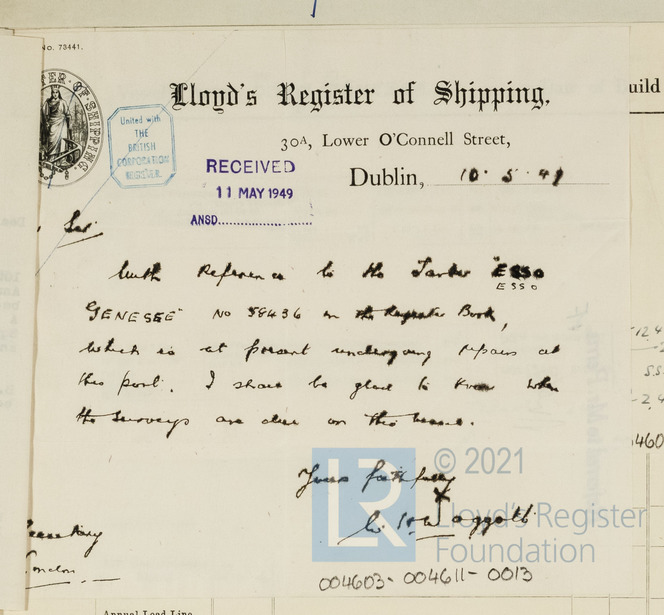 No. 73441.
Lloyd's Register of Shipping,
United with
THE
BRITISH
CORPORATION
REGISTER.
30A, Lower O'Connell Street,
RECEIVED
11 MAY 1949
ANSD.
Dublin, 10.5.49
Sir
With Reference to the Tanker "ESSO
ESSO
GENESEE" No 58436 in the Register Book,
which is at present undergoing repairs at
this port. I shall be glad to know when
the surveys are due on this vessel.
Yours faithfully
Secretary
London
© 2021
Lloyd's Register
Foundation
LR
004603-004611-0013
uild
Annual Load Line